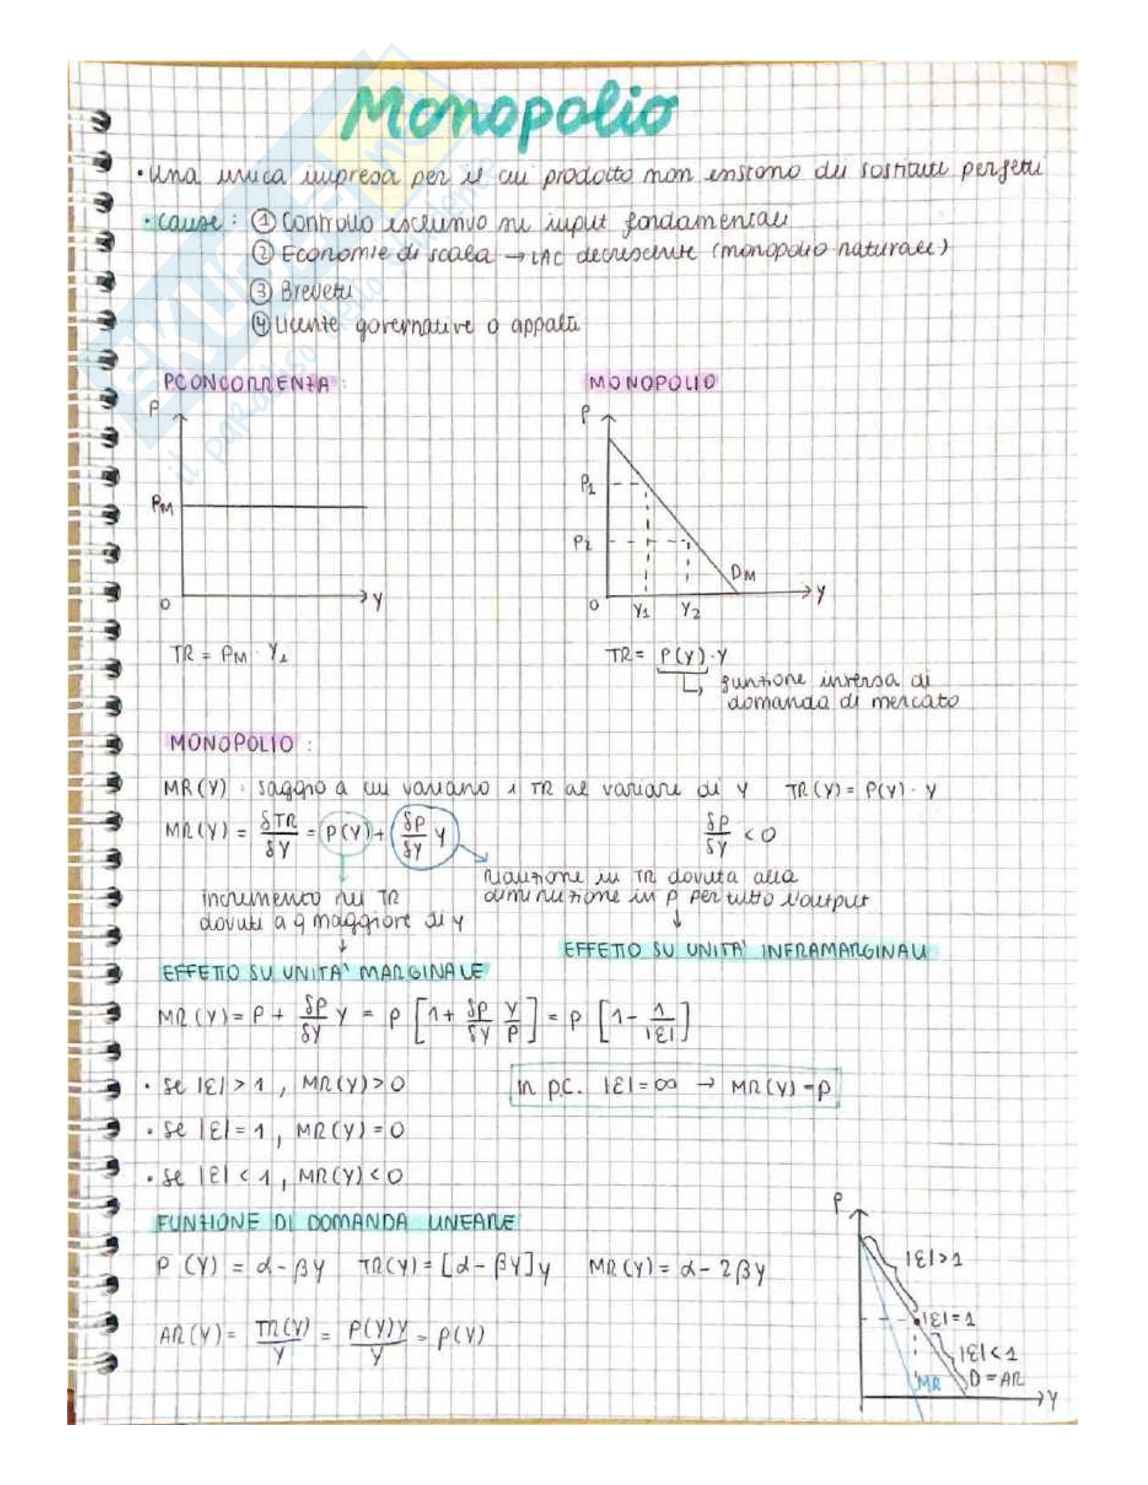 Monopolio
• una unica impresa per il cui prodotto non esistono dei sostituti perfetti
• cause: ① Controllo esclusivo su input fondamentali
② Economie di scala → LAC decrescente (monopolio naturale)
③ Brevetti
④ Licenze governative o appalti
PCONCORRENZA: MONOPOLIO
P P
PM P1
P2
DM
0 Y 0 Y1 Y2 Y
TR = PM · Y1 TR = P(Y)·Y
↳ funzione inversa di
domanda di mercato
MONOPOLIO:
MR(Y): saggio a cui variano i TR al variare di Y TR(Y) = P(Y) · Y
MR(Y) = δTR/δY = P(Y) + δP/δY Y δP/δY < 0
riduzione in TR dovuta alla
diminuzione in P per tutto l'output
incremento nei TR
dovuti a q maggiore di Y
↓
EFFETTO SU UNITA' INFRAMARGINALI
↓
EFFETTO SU UNITA' MARGINALE
MR(Y) = P + δP/δY Y = P [1 + δP/δY Y/P] = P [1 - 1/|ε|]
• se |ε| > 1, MR(Y) > 0 in p.c. |ε| = ∞ → MR(Y) = p
• se |ε| = 1, MR(Y) = 0
• se |ε| < 1, MR(Y) < 0
FUNZIONE DI DOMANDA LINEARE
P (Y) = α - βY TR(Y) = [α - βY]Y MR(Y) = α - 2βY
AR(Y) = TR(Y)/Y = P(Y)Y/Y = P(Y)
P
|ε|>1
|ε|=1
|ε|<1
MR D = AR
Y